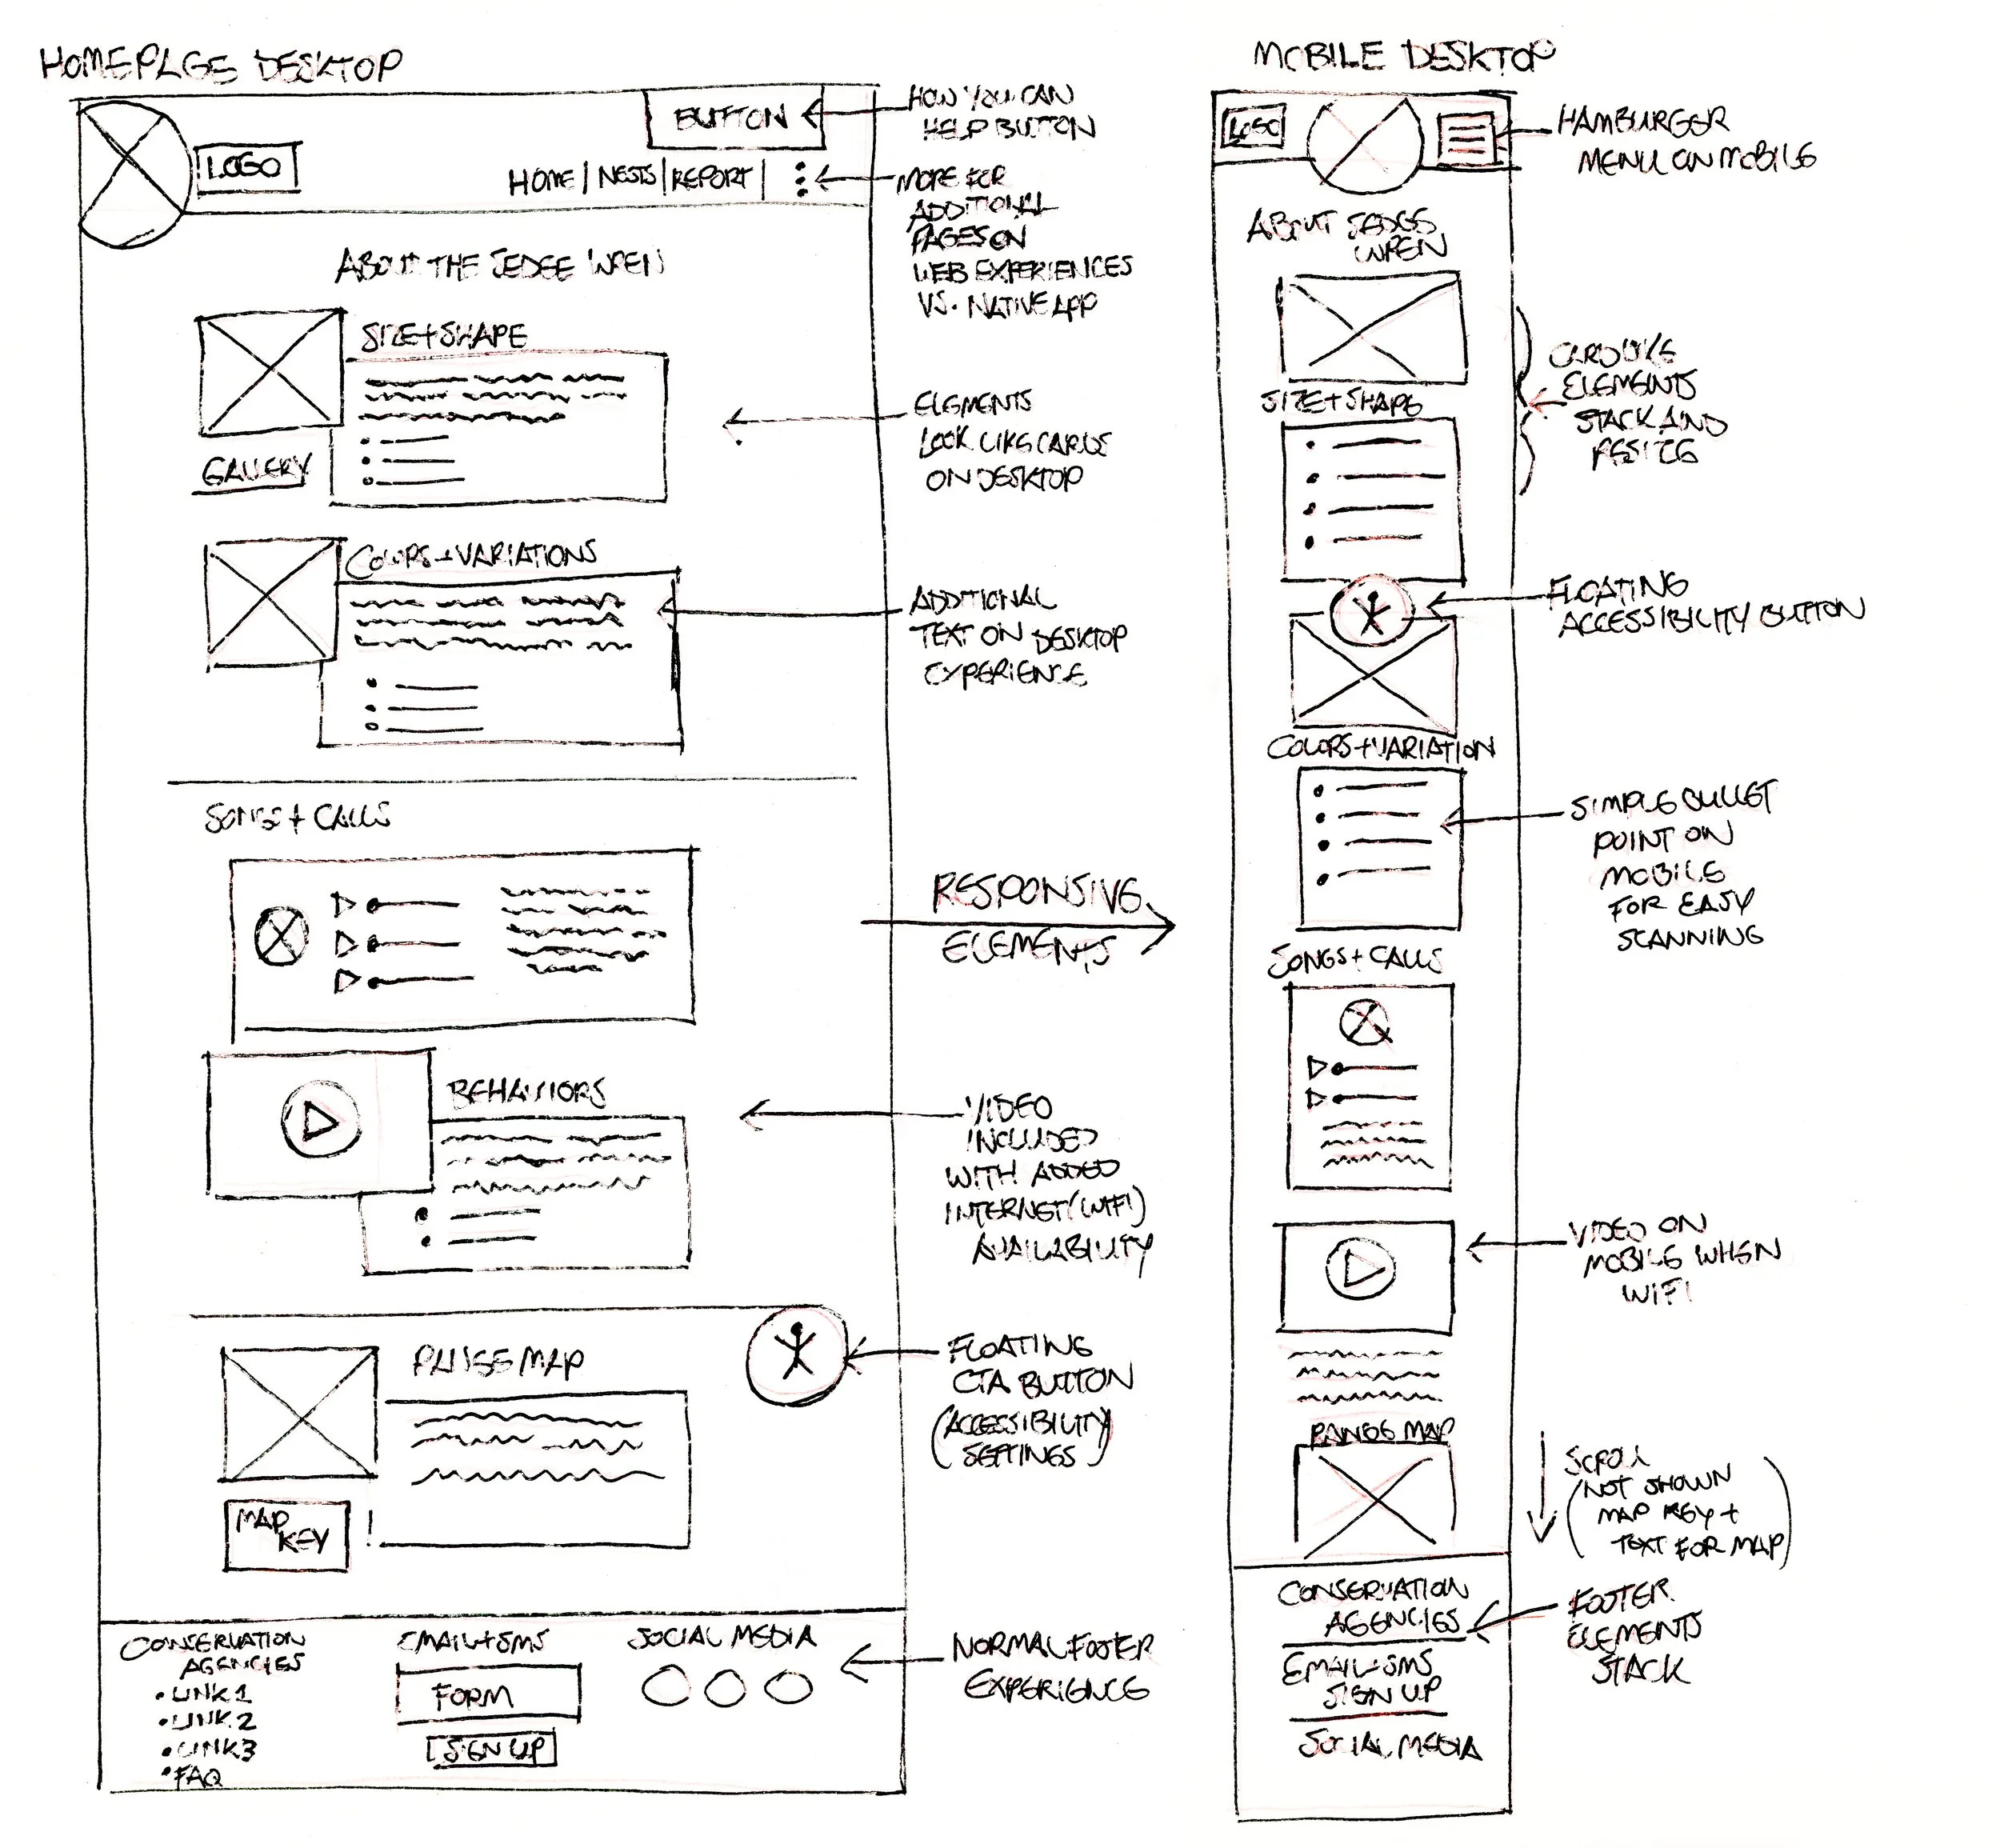 HOMEPAGE DESKTOP
BUTTON
LOGO
HOME | NESTS | REPORT |
HOW YOU CAN
HELP BUTTON
MORE FOR
ADDITIONAL
PAGES ON
WEB EXPERIENCES
VS. NATIVE APP
ABOUT THE SEDGE WREN
SIZE + SHAPE
GALLERY
ELEMENTS
LOOK LIKE CARDS
ON DESKTOP
COLORS + VARIATIONS
ADDITIONAL
TEXT ON DESKTOP
EXPERIENCE
SONGS + CALLS
RESPONSIVE
ELEMENTS
BEHAVIORS
VIDEO
INCLUDED
WITH ADDED
INTERNET (WIFI)
AVAILABILITY
RANGE MAP
MAP
KEY
FLOATING
CTA BUTTON
(ACCESSIBILITY
SETTINGS)
CONSERVATION
AGENCIES
• LINK 1
• LINK 2
• LINK 3
• FAQ
EMAIL + SMS
FORM
SIGN UP
SOCIAL MEDIA
NORMAL FOOTER
EXPERIENCE
MOBILE DESKTOP
LOGO
HAMBURGER
MENU ON MOBILE
ABOUT SEDGE
WREN
SIZE + SHAPE
CARD LIKE
ELEMENTS
STACK AND
RESIZE
FLOATING
ACCESSIBILITY BUTTON
COLORS + VARIATION
SIMPLE BULLET
POINT ON
MOBILE
FOR EASY
SCANNING
SONGS + CALLS
VIDEO ON
MOBILE WHEN
WIFI
RANGE MAP
SCROLL
(NOT SHOWN
MAP KEY +
TEXT FOR MAP)
CONSERVATION
AGENCIES
EMAIL + SMS
SIGN UP
SOCIAL MEDIA
FOOTER
ELEMENTS
STACK